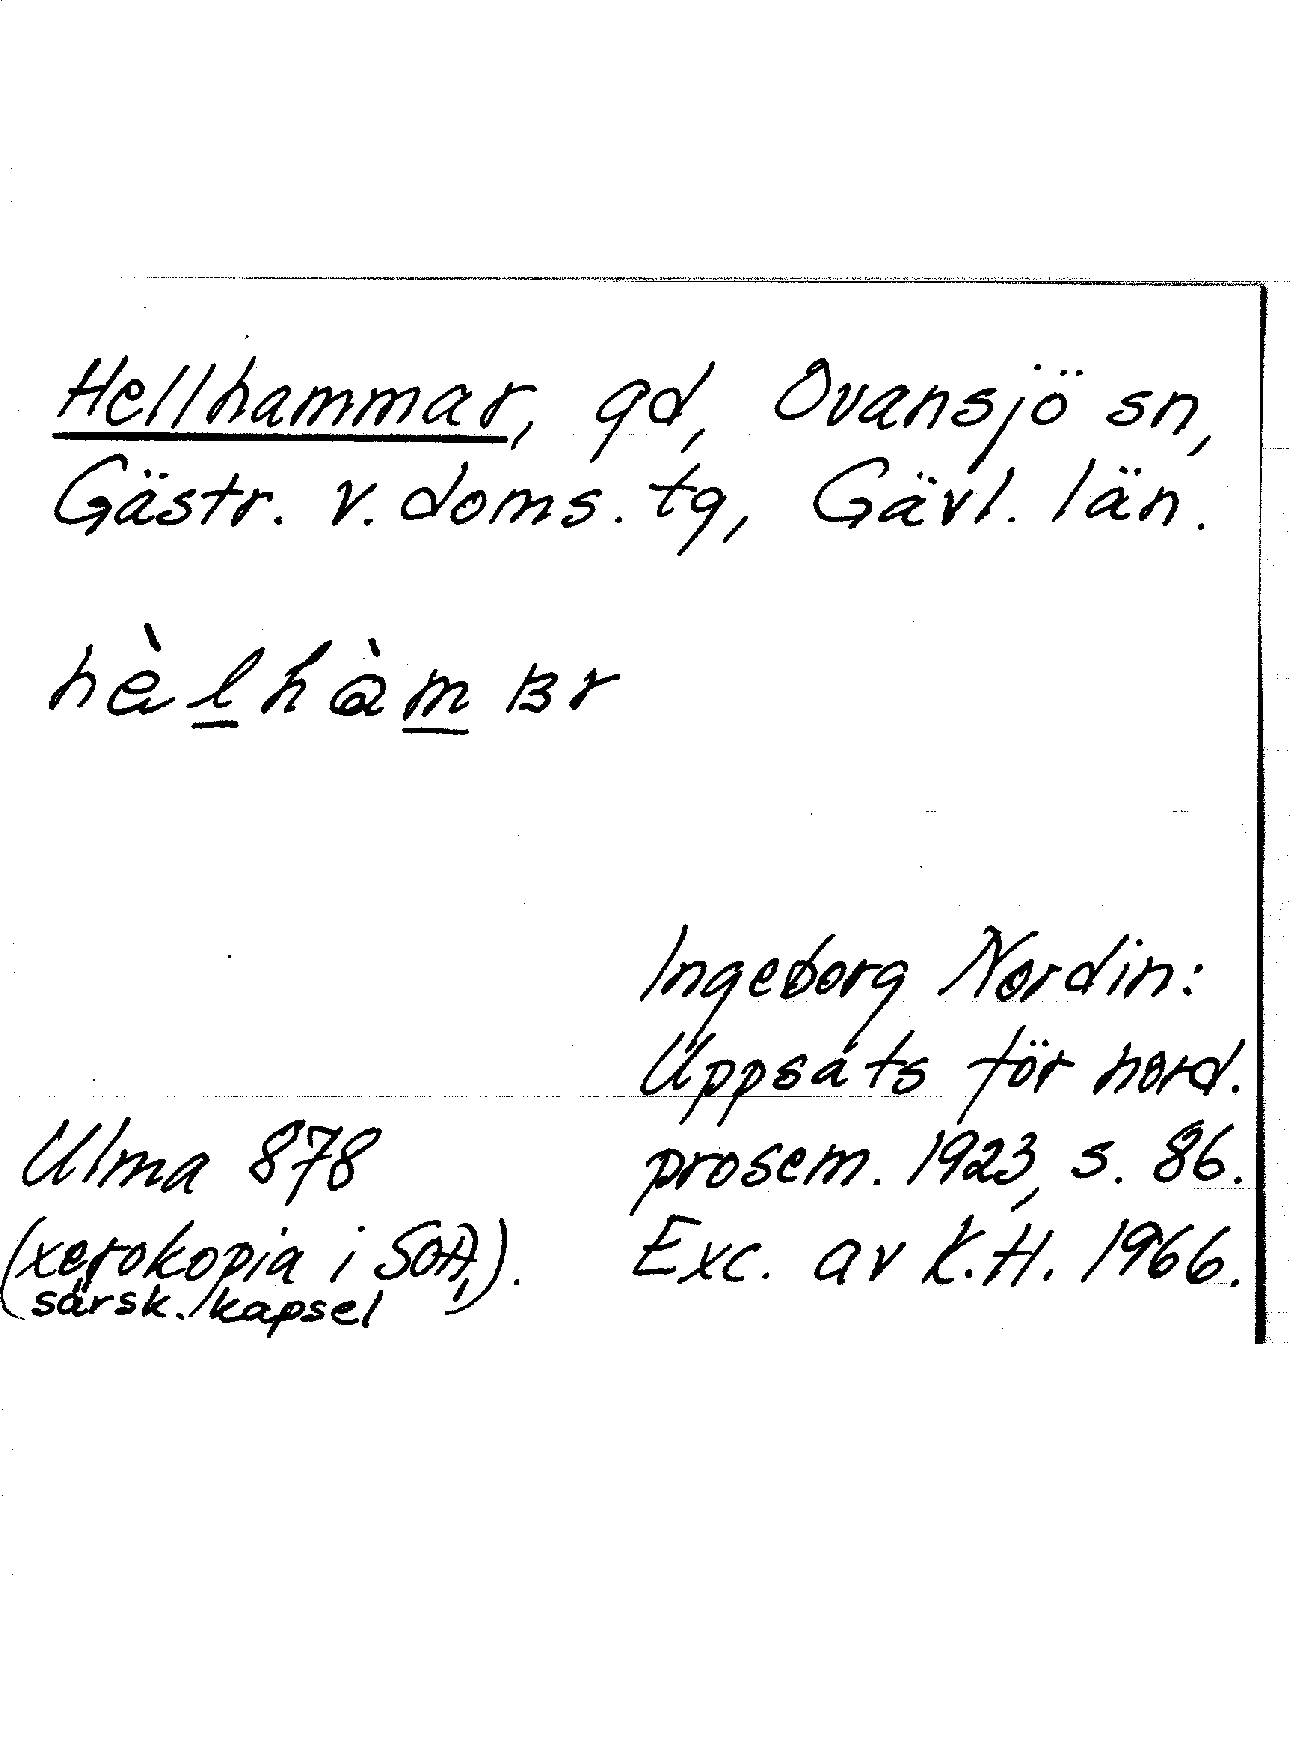 Hellhammar, gd, Ovansjö sn,
Gästr. v. doms. tg, Gävl. län.
hèlhàmʙr
Ingeborg Nordin:
Uppsats för nord.
prosem. 1923, s. 86.
Exc. av K.H. 1966.
Ulma 878
(xerokopia i SOA,
särsk. kapsel).